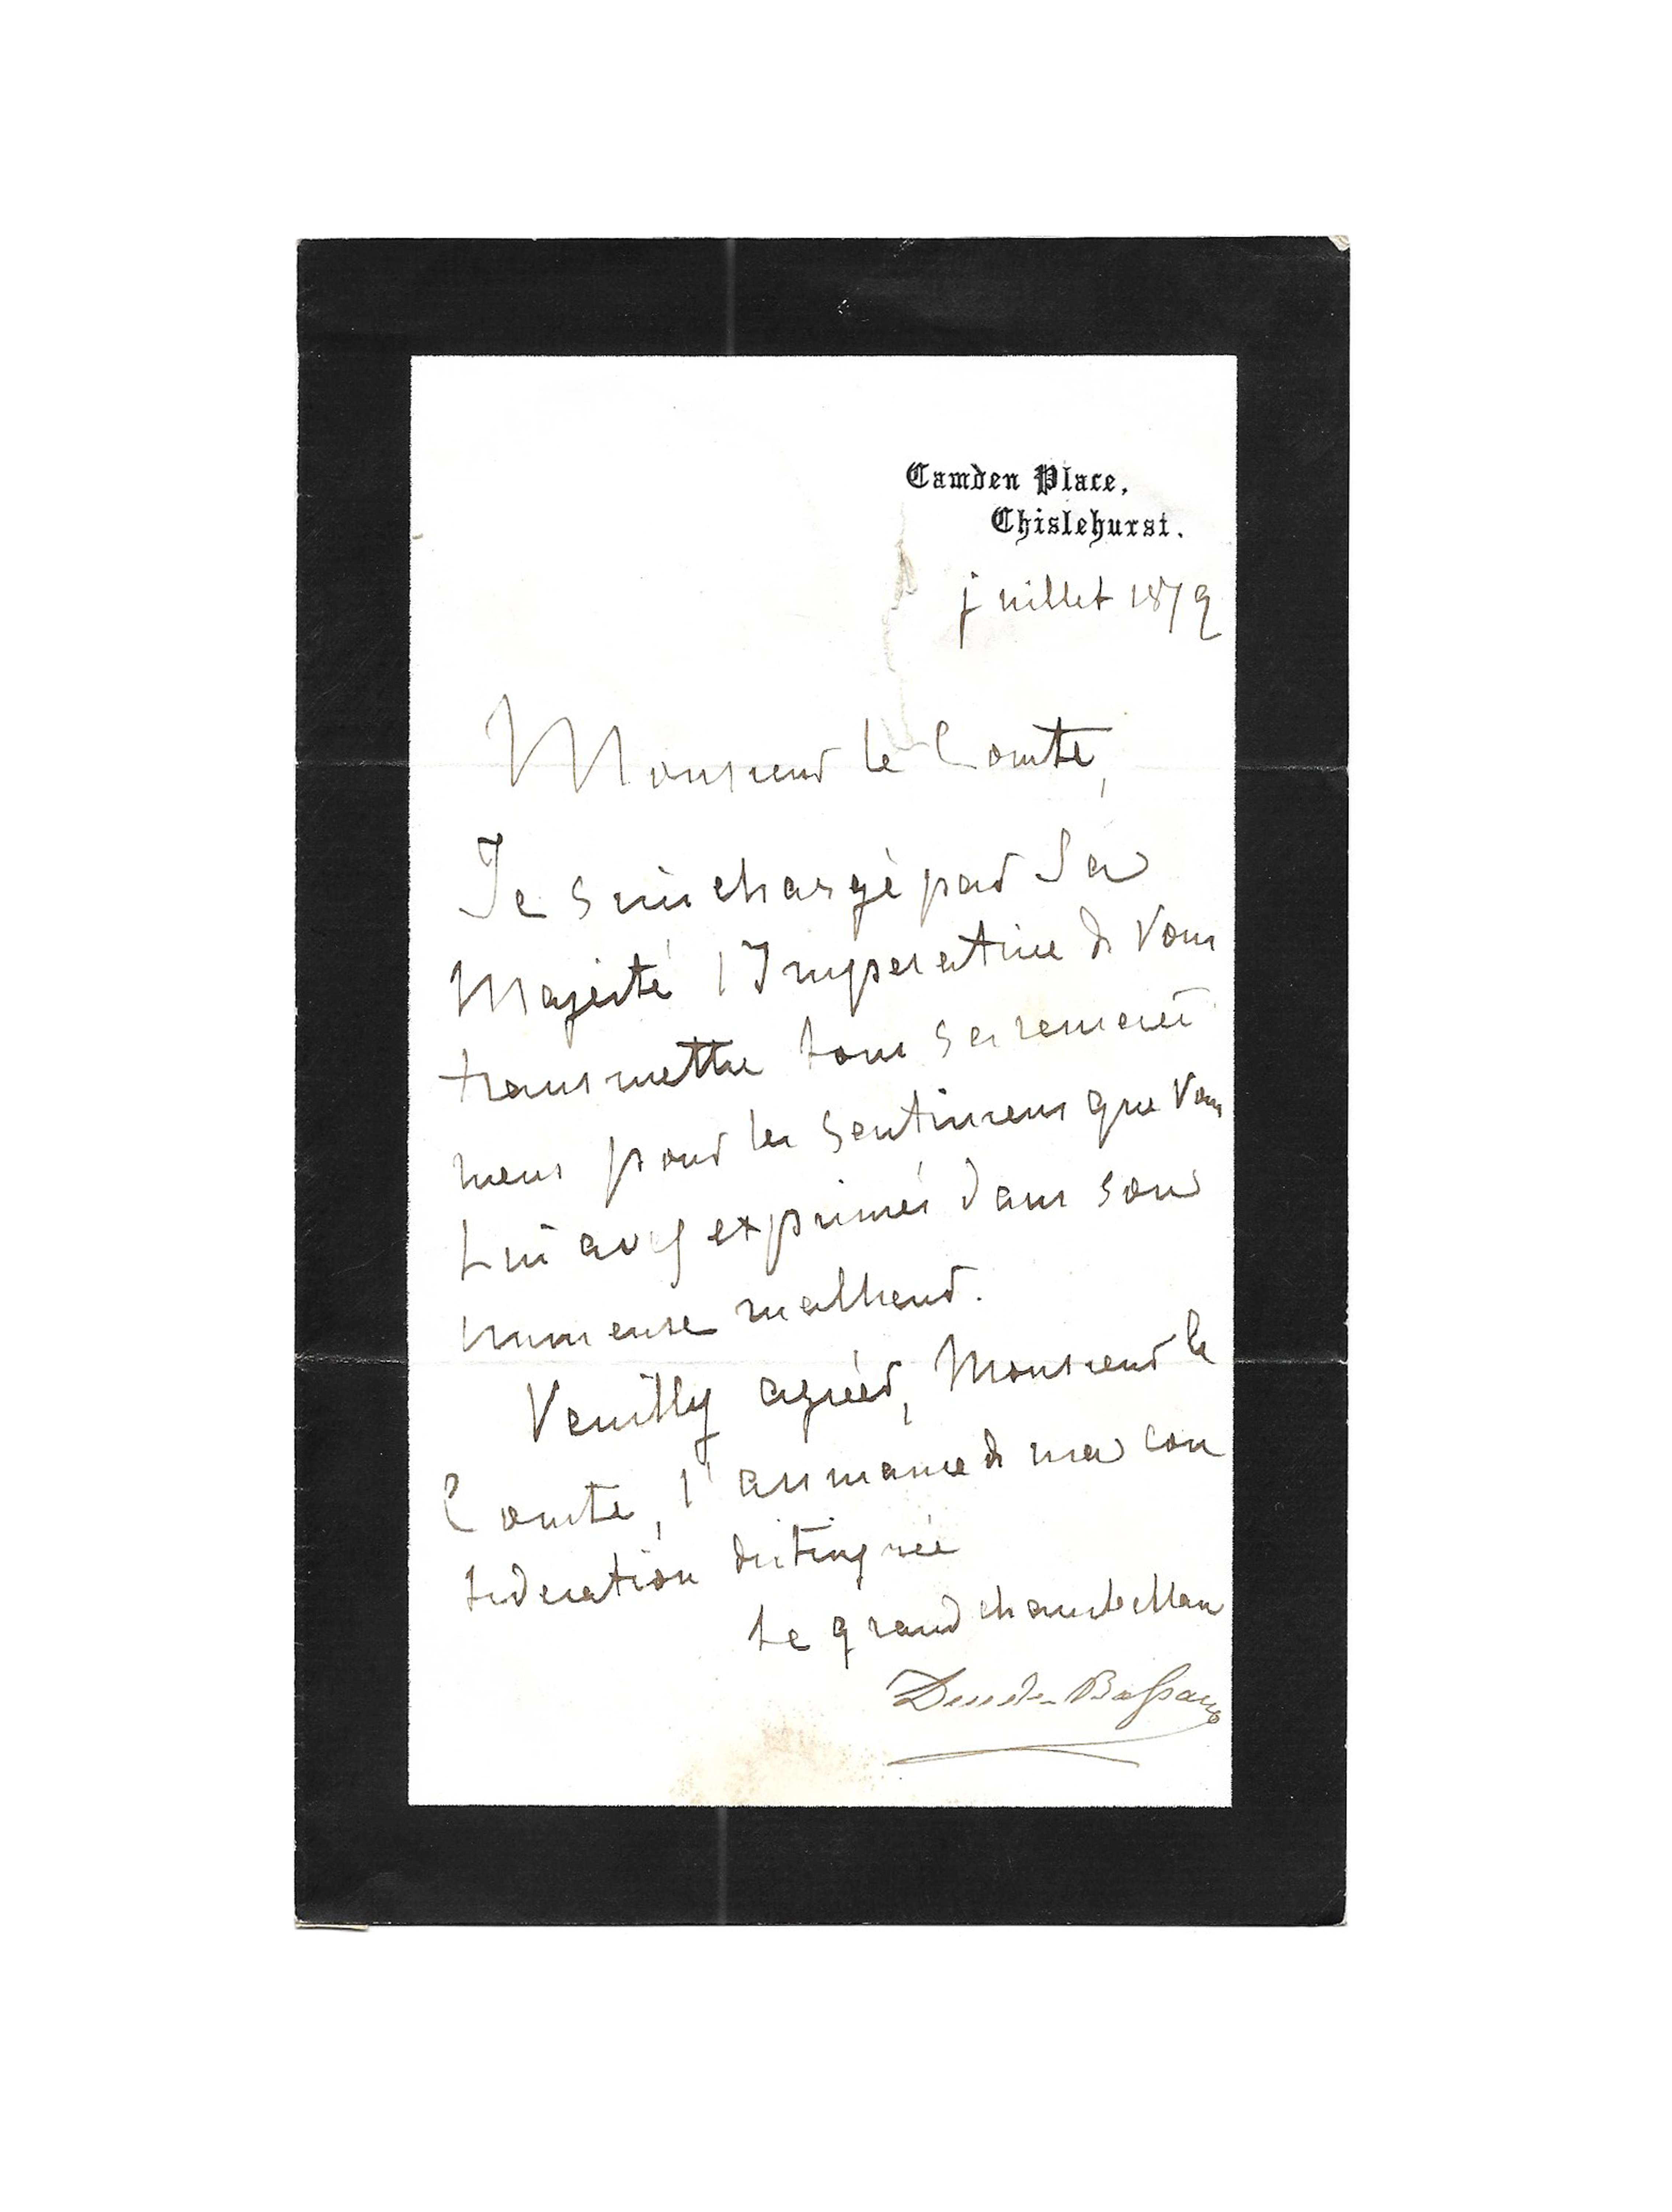 Camden Place,
Chislehurst.
juillet 1879
Monsieur le Comte,
Je suis chargé par Sa
Majesté l'Imperatrice de Vous
transmettre tous ses remerci
mens pour les sentimens que Vous
Lui avez exprimés dans son
immense malheur.
Veuillez agréer, Monsieur le
Comte, l'assurance de ma con
sideration distinguée
Le grand chambellan
Duc de Bassano